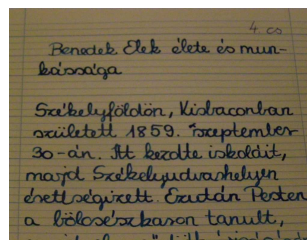 4. cs
Benedek Elek élete és mun-
kássága
Székelyföldön, Kisbaconban
született 1859. szeptember
30-án. Itt kezdte iskoláit,
majd Székelyudvarhelyen
érettségizett. Ezután Pesten
a bölcsészkason tanult,